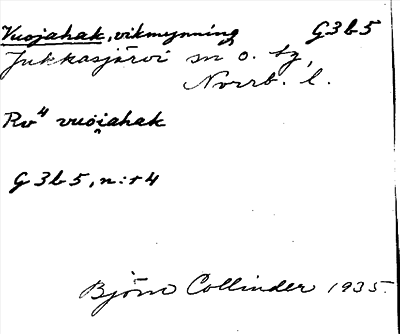 Vuojahak, vikmynning G3b5
Jukkasjärvi sn o. tg,
Norrb. l.
Rv⁴ vuoi̯ahak
G3b5, n:r 4
Björn Collinder 1935.